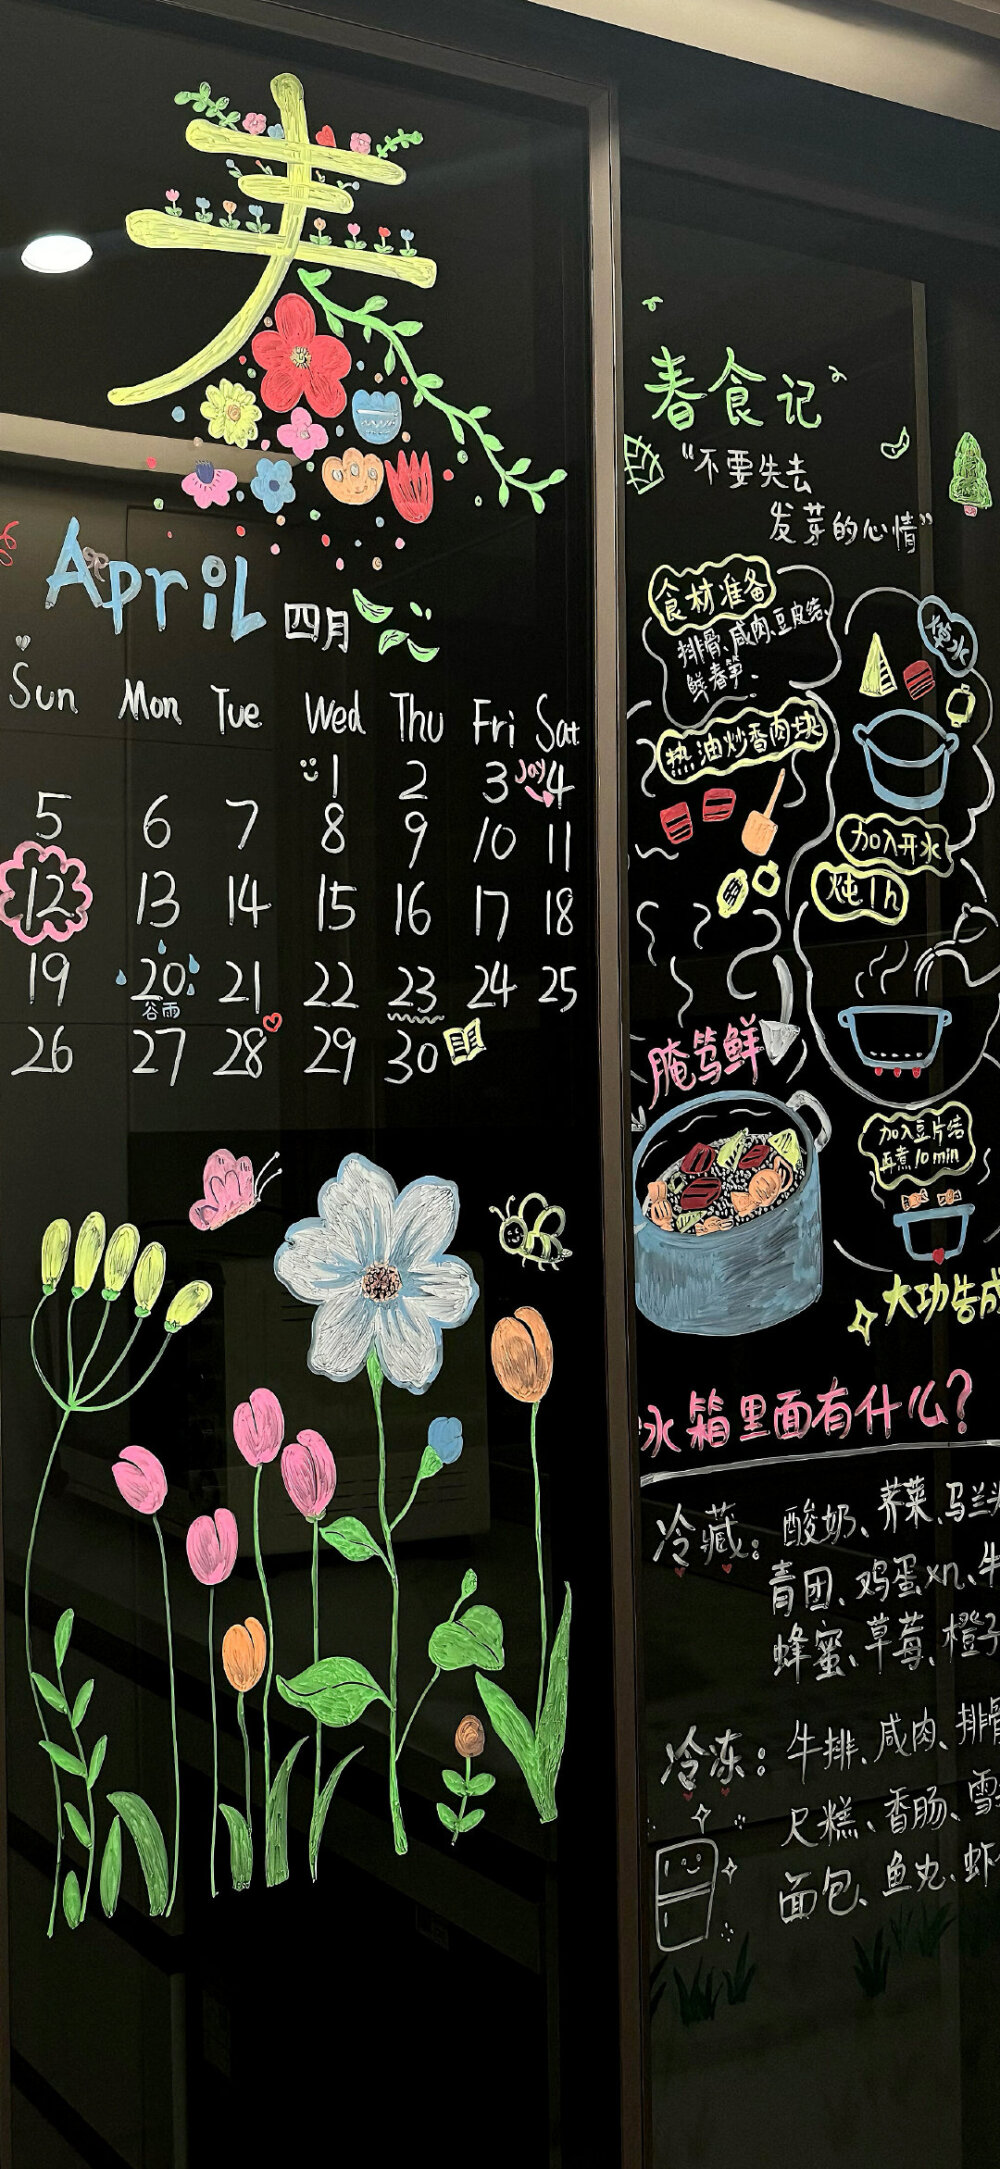 April 四月
Sun Mon Tue Wed Thu Fri Sat
1 2 3 Jay 4
5 6 7 8 9 10 11
12 13 14 15 16 17 18
19 20 21 22 23 24 25
谷雨
26 27 28 29 30
春食记
“不要失去
发芽的心情”
食材准备
排骨、咸肉、豆皮结、
鲜春笋、
焯水
热油炒香肉块
加入开水
炖1h
腌笃鲜
加入豆片结
再煮10min
大功告成
冰箱里面有什么?
冷藏: 酸奶、荠菜、马兰
青团、鸡蛋xn、牛
蜂蜜、草莓、橙子
冷冻: 牛排、咸肉、排骨
尺糕、香肠、雪
面包、鱼丸、虾